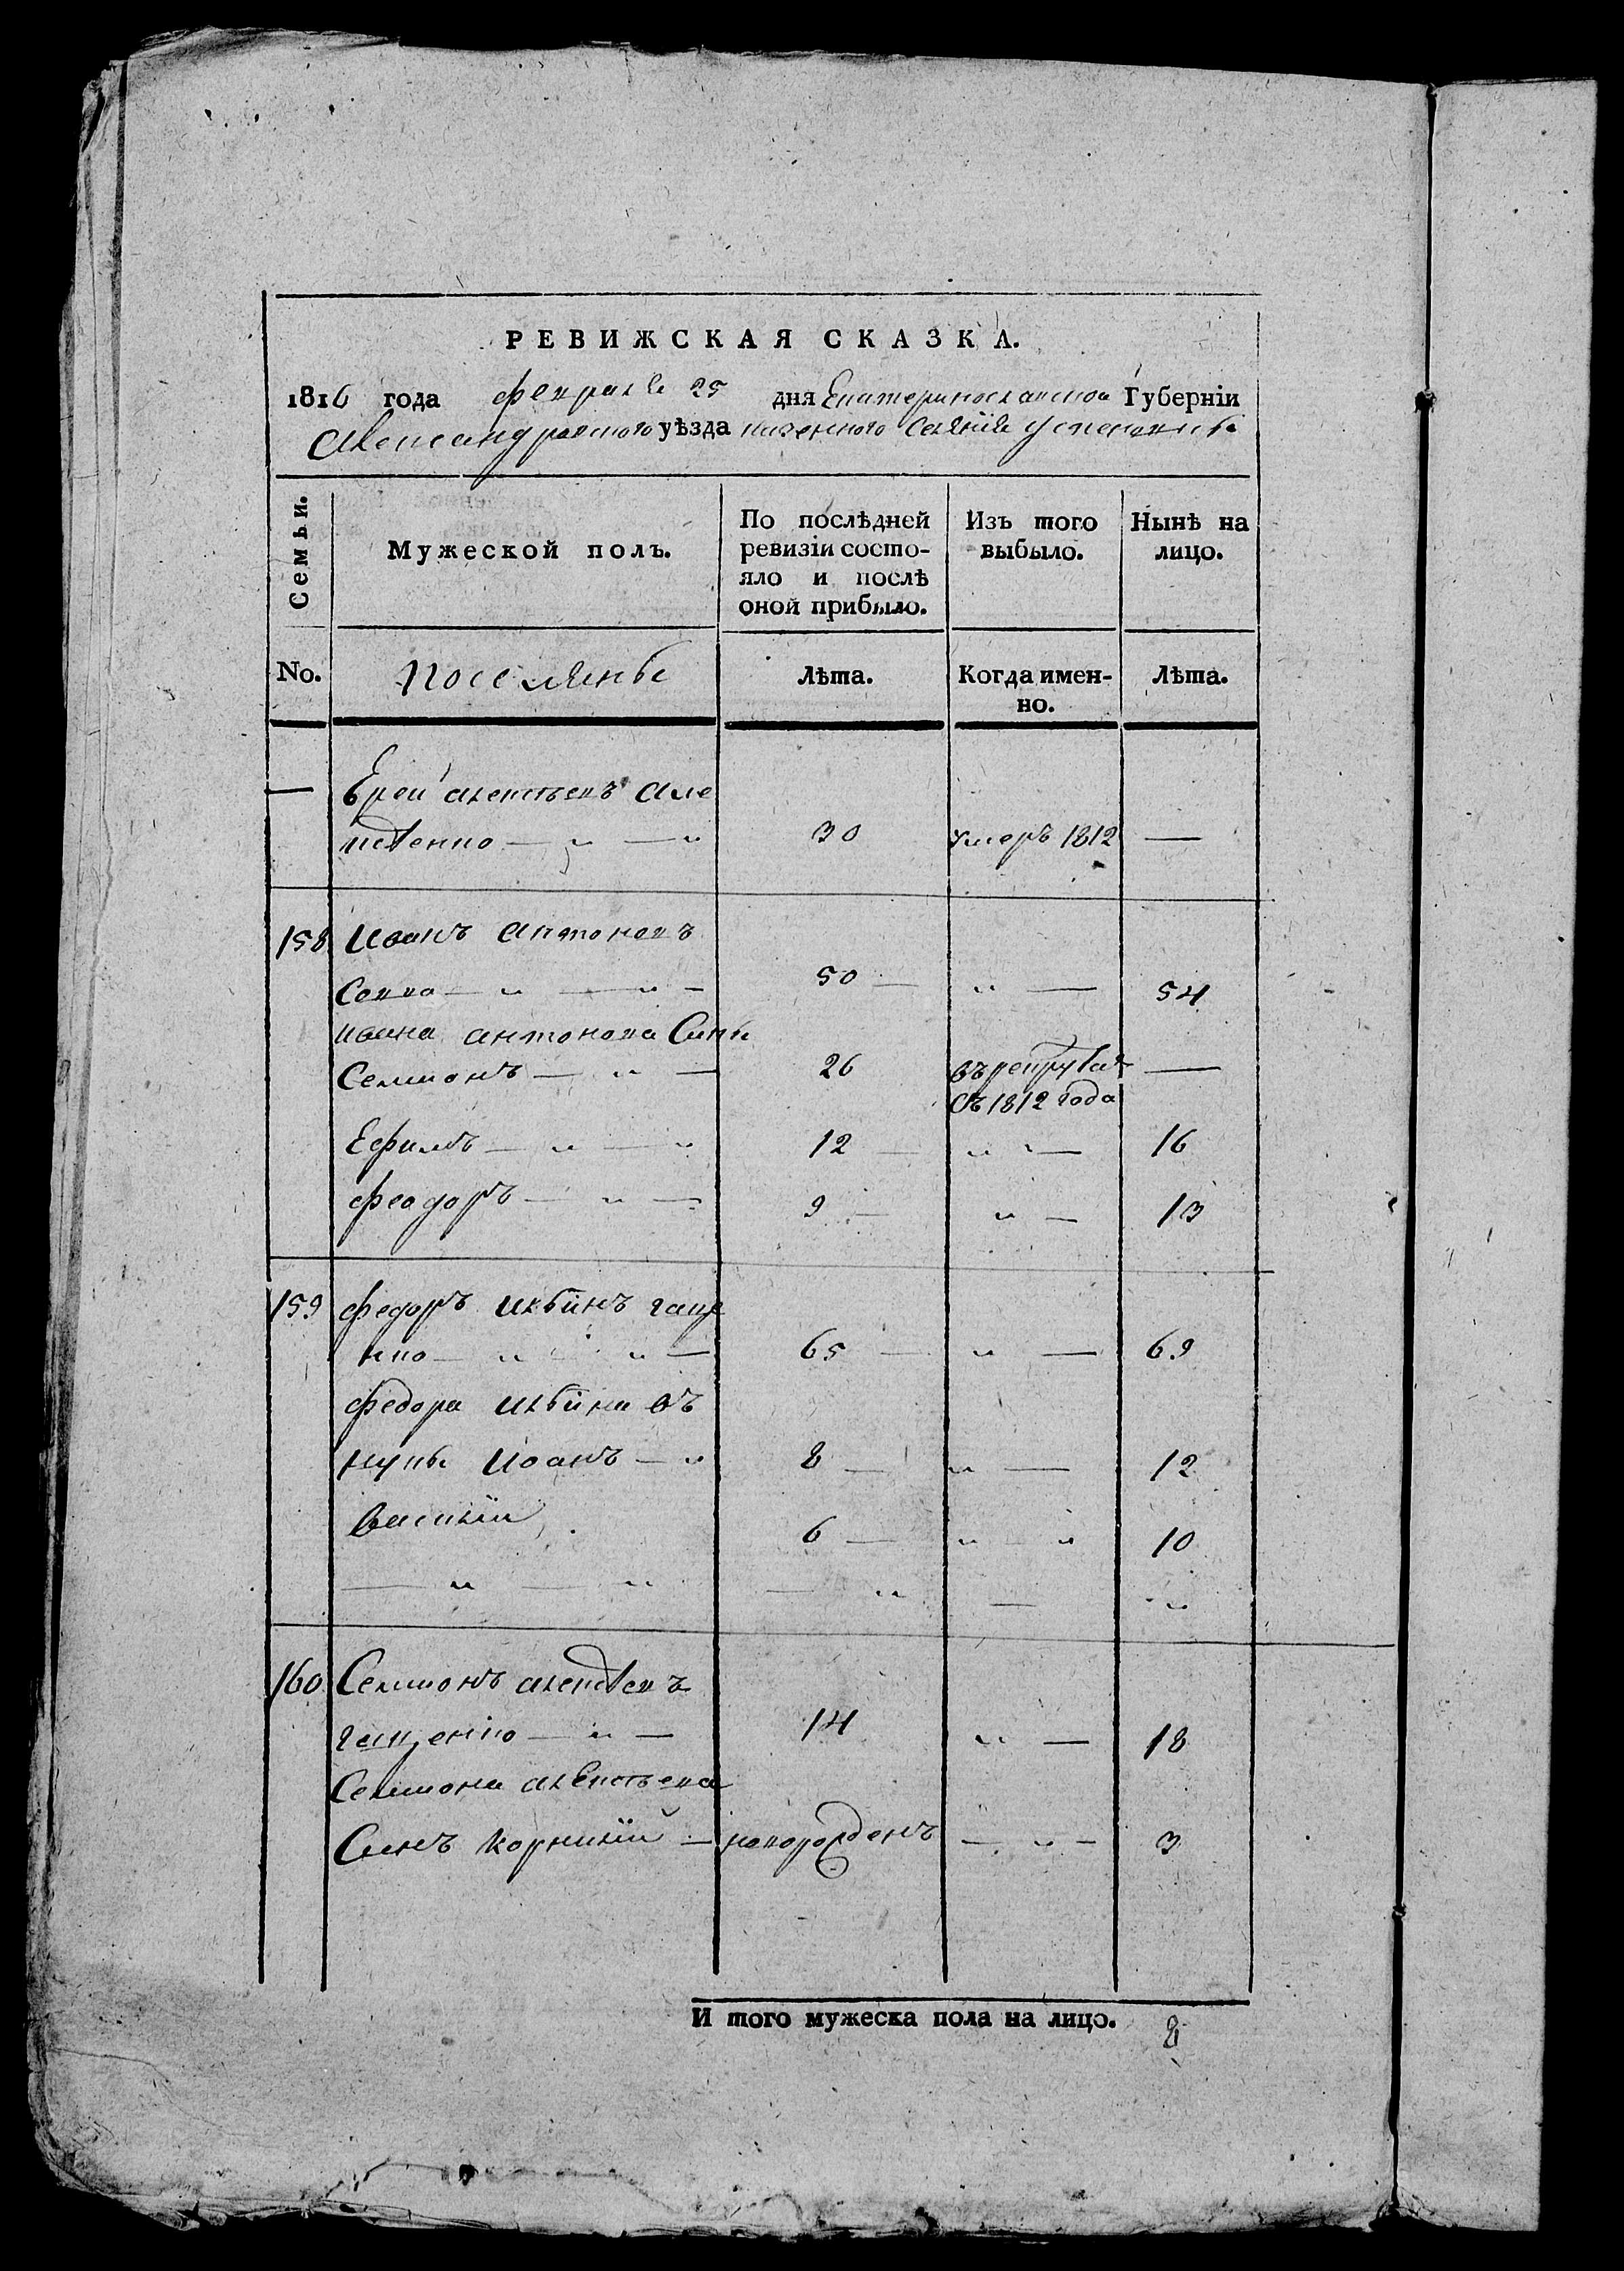 РЕВИЖСКАЯ СКАЗКА.
1816 года февраля 25 дня Екатеринославской Губерніи
Александровского уѣзда казенного селения Успеновки
Семьи.
Мужеской полъ.
По послѣдней
ревизіи состо-
яло и послѣ
оной прибыло.
Изъ того
выбыло.
Нынѣ на
лицо.
No.
поселяны
Лѣта.
Когда имен-
но.
Лѣта.
алексѣевъ Але
ксѣенко 30 умеръ 1812 —
158 Иванъ антоновъ
Совва 50 54
Ивана антонова Сины
Семионъ 26 въ рекрутах —
съ 1812 года
Ефимъ 12 16
Феодоръ 9 13
159 Федоръ гаще
нко 65 69
Федора въ
нуки Иванъ 8 12
Василій 6 10
160 Семионъ алексѣевъ
гащенко 14 18
Семиона алексѣева
Синъ Корнилій новорожденъ 3
И того мужеска пола на лицо. 8